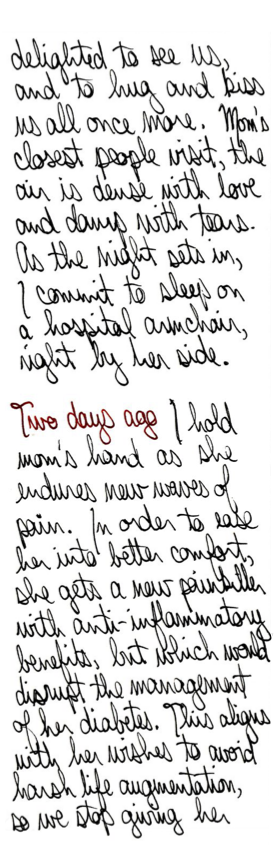 delighted to see us,
and to hug and kiss
us all once more. Mom's
closest people visit, the
air is dense with love
and damp with tears.
As the night sets in,
I commit to sleep on
a hospital armchair,
right by her side.
Two days ago I hold
mom's hand as she
endures new waves of
pain. In order to ease
her into better comfort,
she gets a new painkiller
with anti-inflammatory
benefits, but which would
disrupt the management
of her diabetes. This aligns
with her wishes to avoid
harsh life augmentation,
so we stop giving her